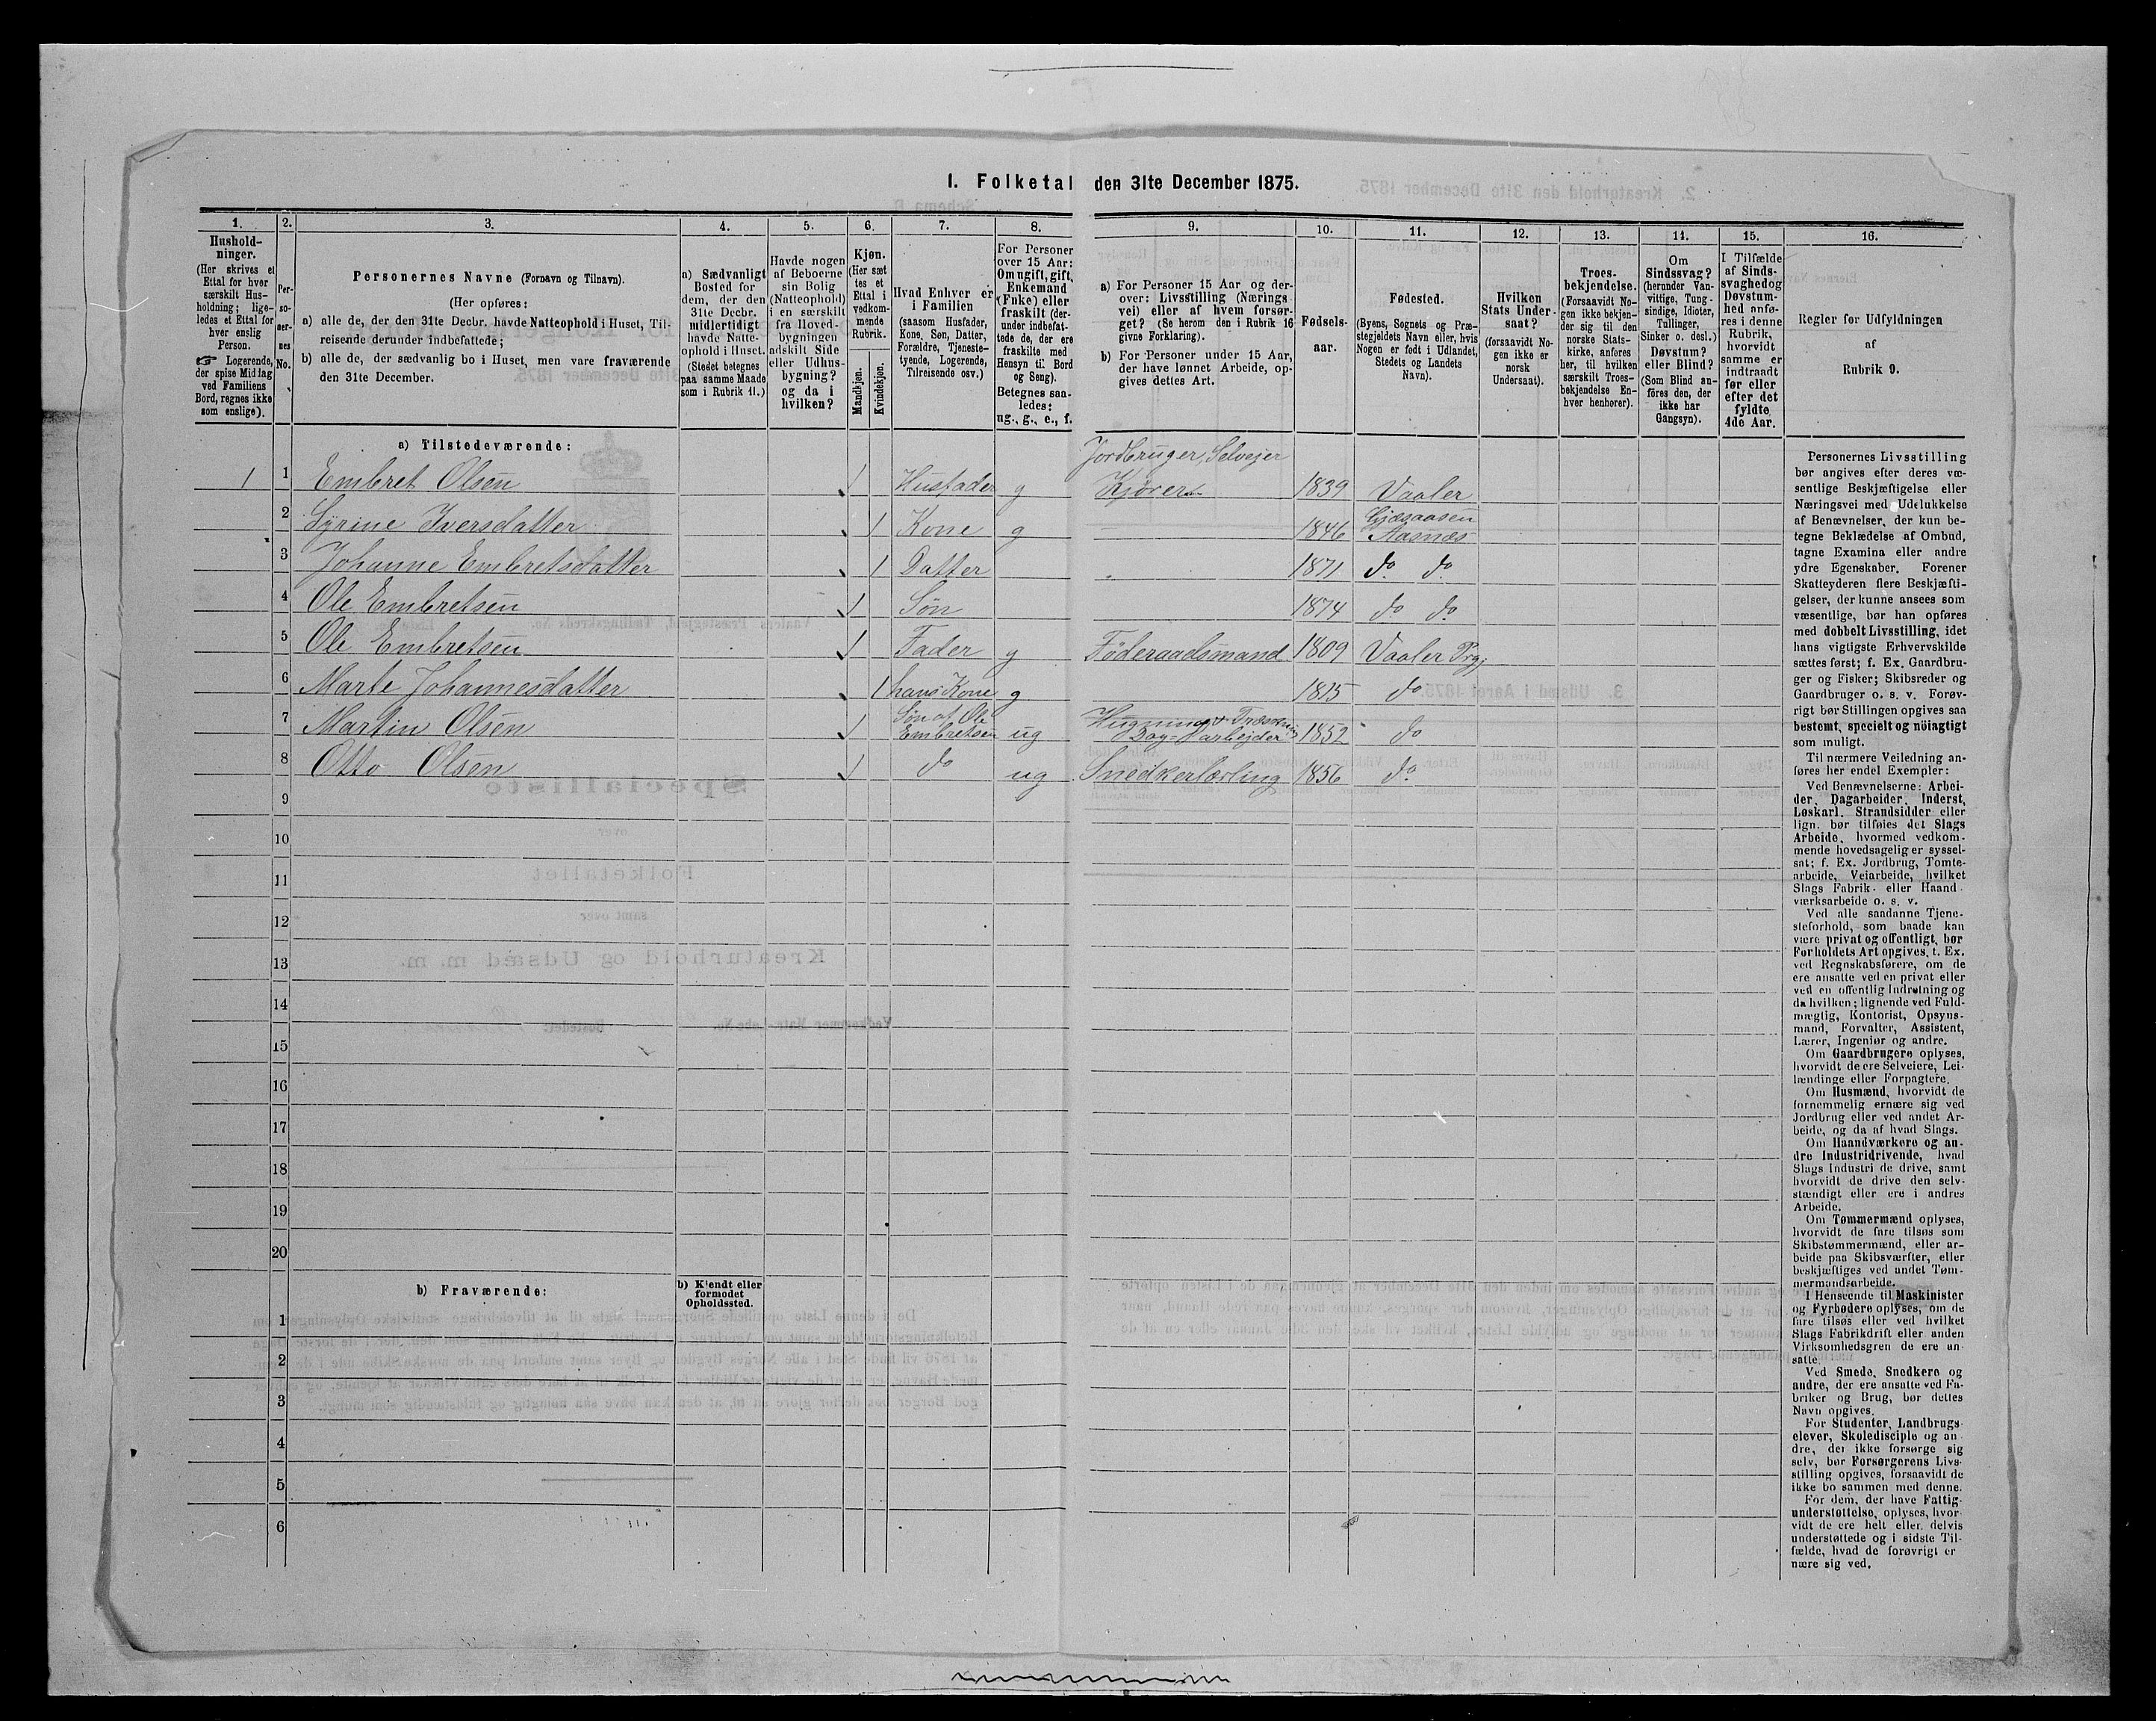 I. Folketal den 31te December 1875.
1. 2. 3. 4. 5. 6. 7. 8. 9. 10. 11. 12. 13. 14. 15. 16.
Hushold-
ninger.
(Her skrives et
Ettal for hver
særskilt Hus-
holdning; lige-
ledes et Ettal for
hver enslig
Person.
☞ Logerende,
der spise Middag
ved Familiens
Bord, regnes ikke
som enslige).
Per-
so-
ner-
nes
No.
Personernes Navne (Fornavn og Tilnavn).
(Her opføres:
a) alle de, der den 31te Decbr. havde Natteophold i Huset, Til-
reisende derunder indbefattede;
b) alle de, der sædvanlig bo i Huset, men vare fraværende
den 31te December.
a) Sædvanligt
Bosted for
dem, der den
31te Decbr.
midlertidigt
havde Natte-
ophold i Huset.
(Stedet betegnes
paa samme Maade
som i Rubrik 11.)
Havde nogen
af Beboerne
sin Bolig
(Natteophold)
i en særskilt
fra Hoved-
bygningen
adskilt Side
eller Udhus-
bygning?
og da i
hvilken?
Kjøn.
(Her sæt
tes et
Ettal i
vedkom-
mende
Rubrik.
Mandkjøn.
Kvindekjøn.
Hvad Enhver er
i Familien
(saasom Husfader,
Kone, Søn, Datter,
Forældre, Tjeneste-
tyende, Logerende,
Tilreisende osv.)
For Personer
over 15 Aar:
Om ugift, gift,
Enkemand
(Enke) eller
fraskilt (der-
under indbefat-
tede de, der ere
fraskilte med
Hensyn til Bord
og Seng).
Betegnes saa-
ledes:
ug., g., e., f.
a) For Personer 15 Aar og der-
over: Livsstilling (Nærings
vei) eller af hvem forsør-
get? (Se herom den i Rubrik 16
givne Forklaring).
b) For Personer under 15 Aar,
der have lønnet Arbeide, op-
gives dettes Art.
Fødsels-
aar.
Fødested.
(Byens, Sognets og Præ-
stegjeldets Navn eller, hvis
Nogen er født i Udlandet,
Stedets og Landets
Navn).
Hvilken
Stats Under-
saat?
(forsaavidt No-
gen ikke er
norsk
Undersaat).
Troes-
bekjendelse.
(Forsaavidt No-
gen ikke bekjen-
der sig til den
norske Stats-
kirke, anføres
her, til hvilken
særskilt Troes-
bekjendelse En-
hver henhører).
Om
Sindssvag?
(herunder Van-
vittige, Tung-
sindige, Idioter,
Tullinger,
Sinker o. desl.)
Døvstum?
eller Blind?
(Som Blind an-
føres den, der
ikke har
Gangsyn).
I Tilfælde
af Sinds-
svaghed og
Døvstum-
hed anfø-
res i denne
Rubrik,
hvorvidt
samme er
indtraadt
før eller
efter det
fyldte
4de Aar.
Regler før Udfyldningen
af
Rubrik 9.
a) Tilstedeværende:
Jordbruger, Selvejer
1 1 Embret Olsen 1 Husfader g Kjører 1839 Vaaler
Gjesaasen
2 Syrine Iversdatter 1 Kone g 1846 Aasnes
3 Johanne Embretsdatter 1 Datter 1871 do do
4 Ole Embretsen 1 Søn 1874 do do
5 Ole Embretsen 1 Fader g Føderaadsmand 1809 Vaaler Prgj
6 Marte Johannesdatter 1 hans Kone g 1815 do
Søn af Ole
7 Martin Olsen 1 Embretsen ug Dag= arbejder 1852 do
8 Otto Olsen 1 do ug Snedkerlærling 1856 do
9
10
11
12
13
14
15
16
17
18
19
20
b) Fraværende:
b) Kjendt eller
formodet
Opholdssted.
1
2
3
4
5
6
Personernes Livsstilling
bør angives efter deres væ-
sentlige Beskjæftigelse eller
Næringsvei med Udelukkelse
af Benævnelser, der kun be-
tegne Beklædelse af Ombud,
tagne Examina eller andre
ydre Egenskaber. Forener
Skatteyderen flere Beskjæfti-
gelser, der kunne ansees som
væsentlige, bør han opføres
med dobbelt Livsstilling, idet
hans vigtigste Erhvervskilde
sættes først; f. Ex. Gaardbru-
ger og Fisker; Skibsreder og
Gaardbruger o. s. v. Forøv-
rigt bør Stillingen opgives saa
bestemt, specielt og nöiagtigt
som muligt.
Til nærmere Veiledning an-
føres her endel Exempler:
Ved Benævnelserne: Arbei-
der, Dagarbeider, Inderst,
Løskarl, Strandsidder eller
lign. bør tilføies det Slags
Arbeide, hvormed vedkom-
mende hovedsagelig er syssel-
sat; f. Ex. Jordbrug, Tomte-
arbeide, Veiarbeide, hvilket
Slags Fabrik- eller Haand-
værksarbeide o. s. v.
Ved alle saadanne Tjene-
steforhold, som baade kan
være privat og offentligt, bør
Forholdets Art opgives, t. Ex.
ved Regnskabsførere, om de
ere ansatte ved en privat eller
ved en offentlig Indretning og
da hvilken; lignende ved Fuld-
mægtig, Kontorist, Opsyns-
mand, Forvalter, Assistent,
Lærer, Ingeniør og andre.
Om Gaardbrugere oplyses,
hvorvidt de ere Selveiere, Lei-
lændinge eller Forpagtere.
Om Husmænd, hvorvidt de
fornemmelig ernære sig ved
Jordbrug eller ved andet Ar-
beide, og da af hvad Slags.
Om Haandværkere og an-
dre Industridrivende, hvad
Slags Industri de drive, samt
hvorvidt de drive den selv-
stændigt eller ere i andres
Arbeide.
Om Tømmermænd oplyses,
hvorvidt de fare tilsøs som
Skibstømmermænd, eller ar-
beide paa Skibsværfter, eller
beskjæftiges ved andet Tøm-
mermandsarbeide.
I Henseende til Maskinister
og Fyrbødere oplyses, om de
fare tilsøs eller ved hvilket
Slags Fabrikdrift eller anden
Virksomhedsgren de ere an-
satte.
Ved Smede, Snedkere og
andre, der ere ansatte ved Fa-
briker og Brug, bør dettes
Navn opgives.
For Studenter, Landbrugs-
elever, Skoledisciple og an-
dre, der ikke forsørge sig
selv, bør Forsørgerens Livs-
stilling opgives, forsaavidt de
ikke bo sammen med denne.
For dem, der have Fattig-
understøttelse, oplyses, hvor-
vidt de ere helt eller delvis
understøttede og i sidste Til-
fælde, hvad de forøvrigt er
nære sig ved.